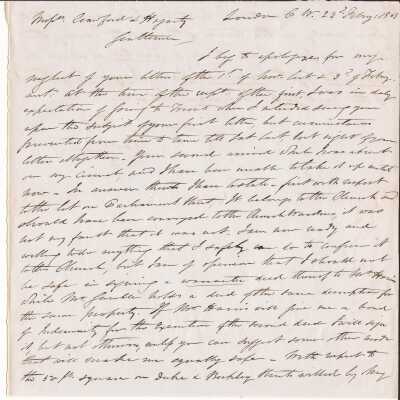 Messrs Crawford & Hagarty London C. W. 22d Feby. 18
Gentlemen
I beg to apologize for my
neglect of your letters of the 1st of Novr last & 3d of Feby.
inst. At the time of the rect of the first I was in daily
expectation of going to Toronto when I intended seeing you
upon the subject of your first letter but circumstances
prevented from time to time till I at last lost sight of your
letter altogether. Your second arrived while I was absent
on my circuit and I have been unable to take it up until
now - In answer thereto I have to state - first with respect
to the lot on Parliament Street. It belongs to the Church and
should have been conveyed to the Church Wardens, it was
not my fault that it was not. I am now ready and
willing to do anything that I safely can do to confirm it
to the Church, but I am of opinion that I should not
be safe in signing a deed thereof to Mr Harris
while Mr holds a deed of the same description for
the same property. If Mr Harris will give me a bond
of Indemnity for the execution of the second deed I will sign
it, but not otherwise, unless you can suggest some other mode
that will make me equally safe - With respect to
the 50 ft square on Duke & Berkley Streets willed by My